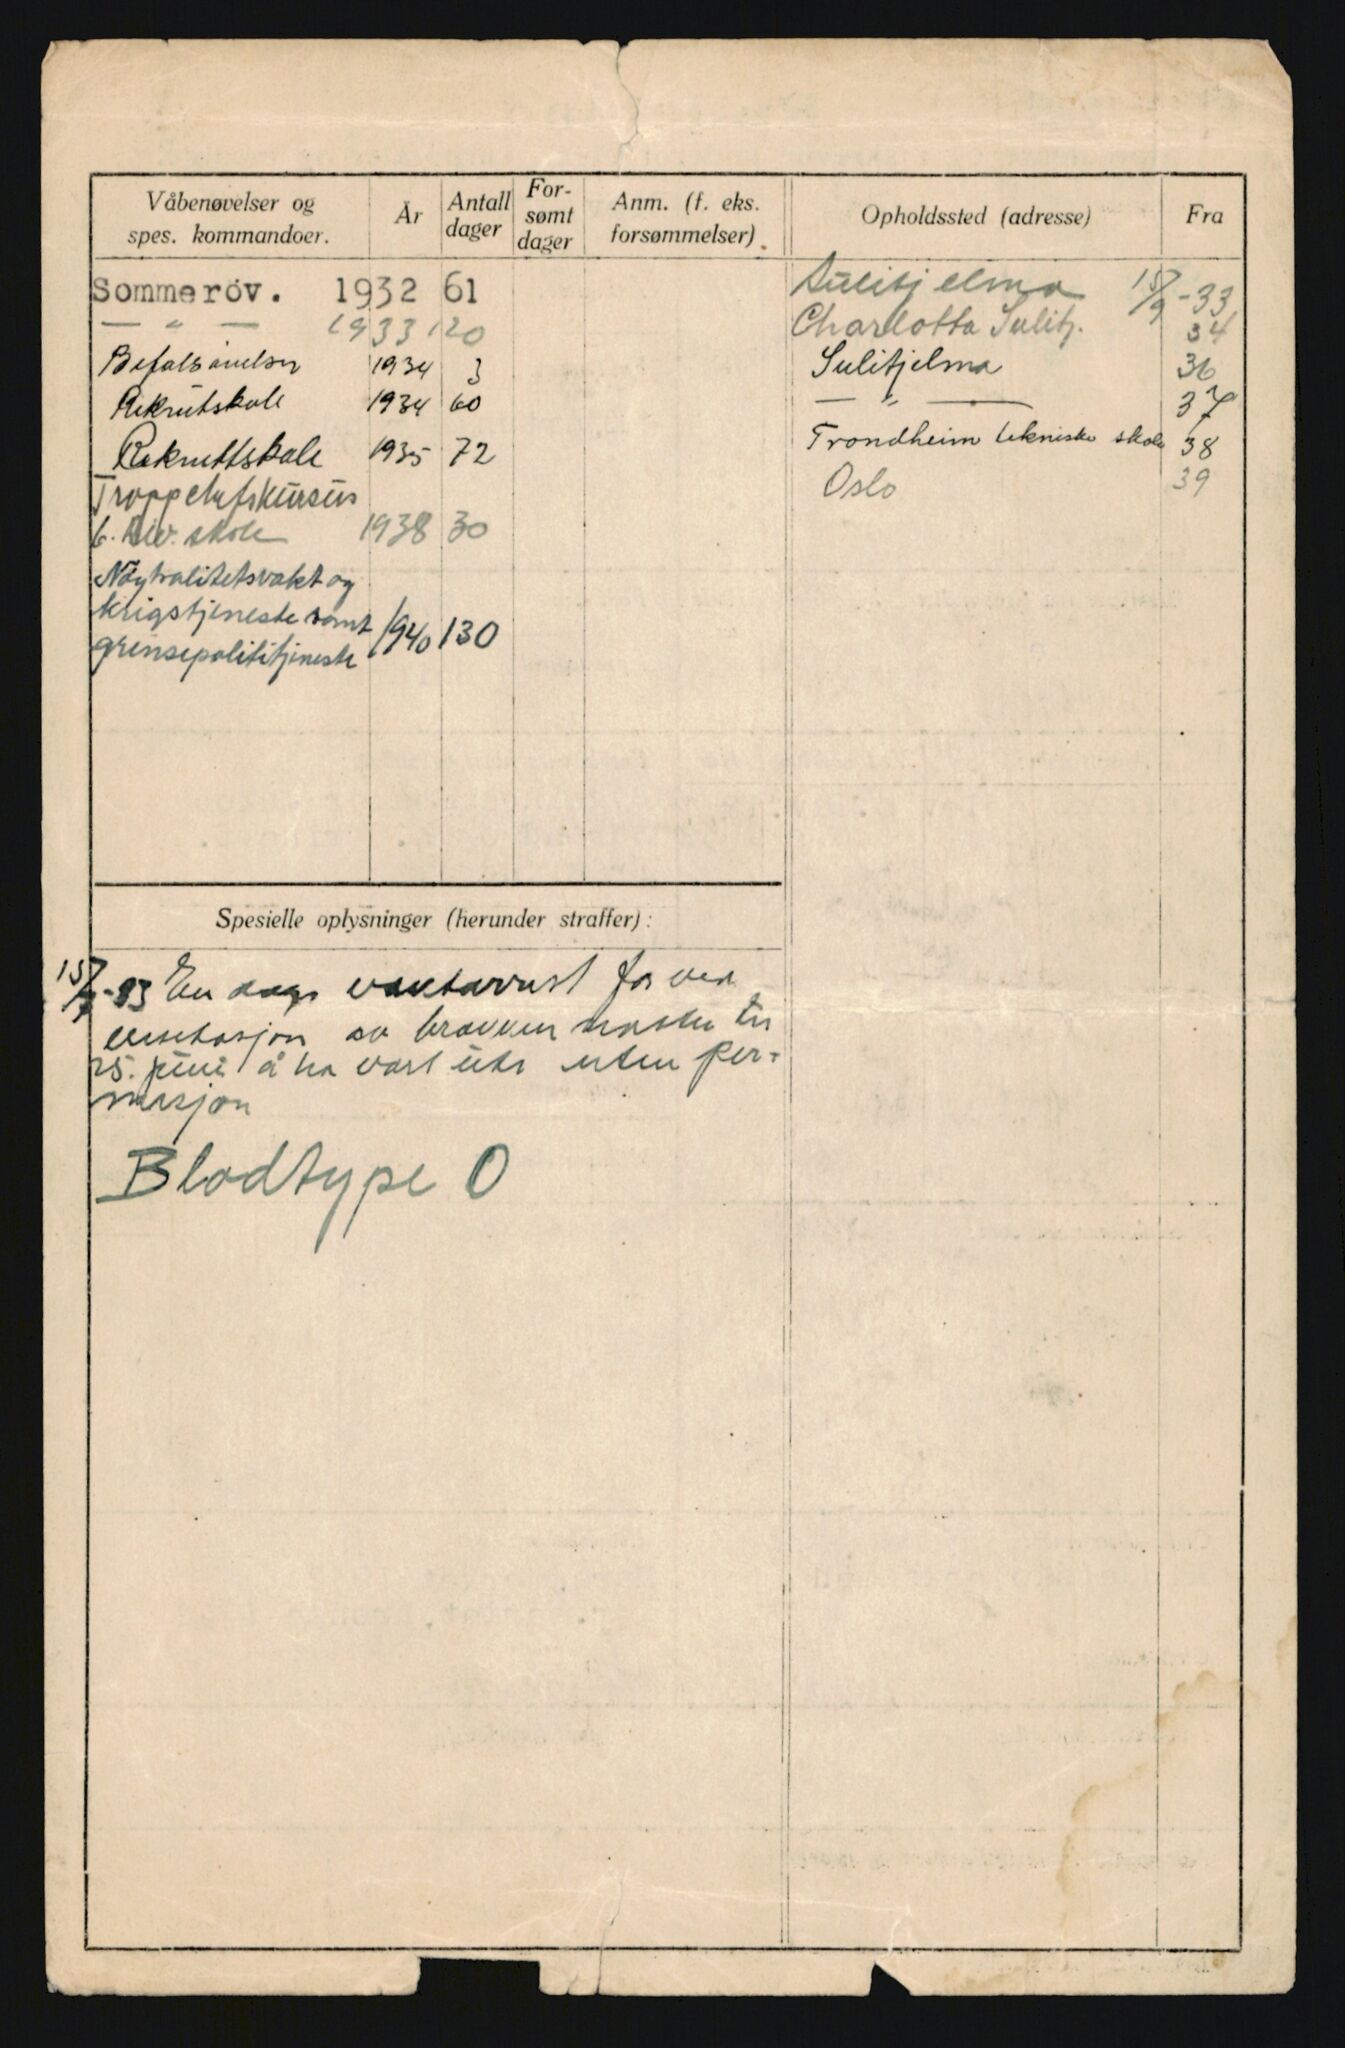 Våbenøvelser og
spes. kommandoer.
År
Antall
dager
For-
sømt
dager
Anm. (f. eks.
forsømmelser).
Opholdssted (adresse)
Fra
Sommeröv. 1932 61
— " — 1933 120
Befalsøvelser 1934 3
Rekrutskole 1934 60
Rekruttskole 1935 72
Troppsjefskursus
6. Div. skole 1938 30
Nøytralitetsvakt og
krigstjeneste samt
grensepolititjeneste 1940 130
Sulitjelma 15/9-33
Charlotta Sulitj. 34
Sulitjelma 36
— " — 37
Trondheim tekniske skole 38
Oslo 39
Spesielle oplysninger (herunder straffer):
En dags vaktarrest for ved
av brakken natten til
25. juni å ha vært ute uten per-
masjon
Blodtype O